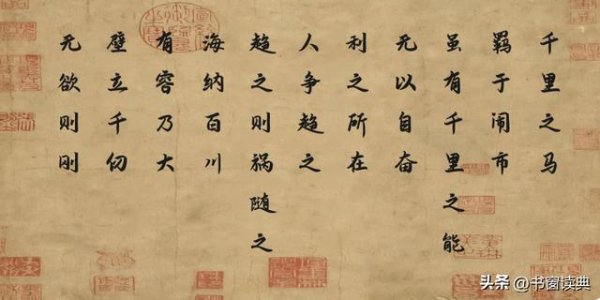 千里之马
羁于闹市
虽有千里之能
无以自奋
利之所在
人争趋之
趋之则祸随之
海纳百川
有容乃大
壁立千仞
无欲则刚
头条 @书窗读典